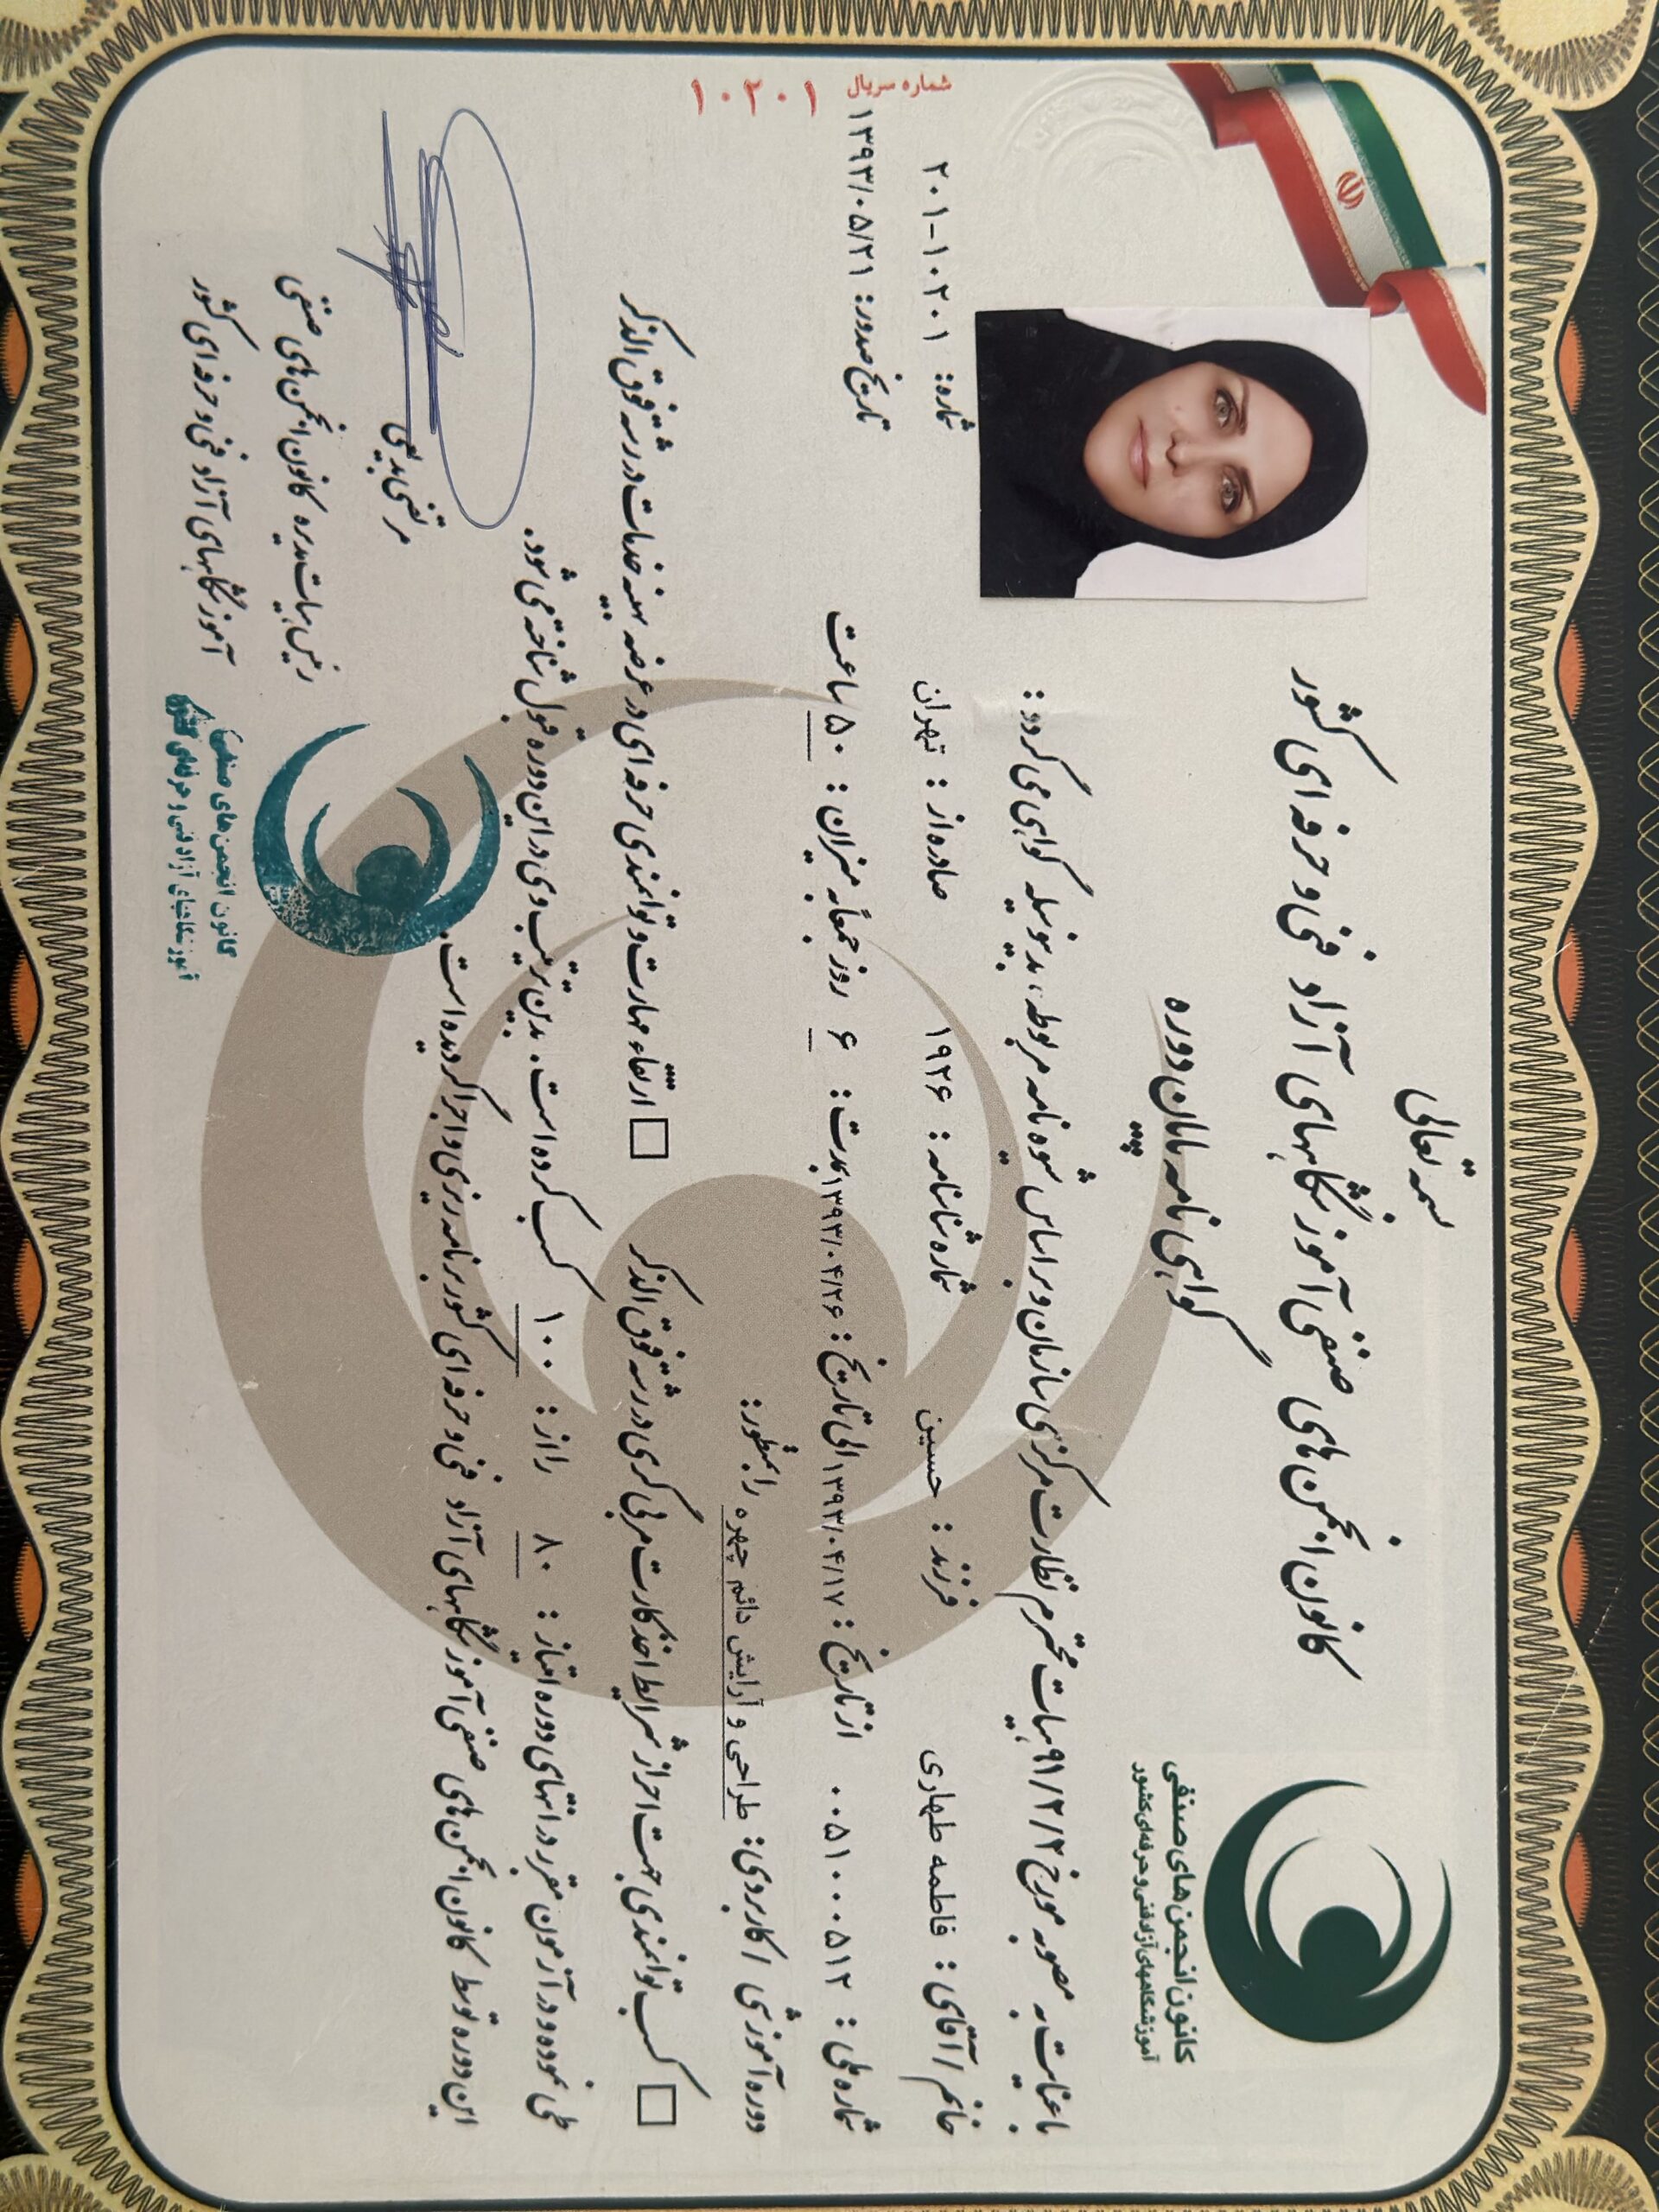 بسمه تعالی
کانون انجمن های صنفی آموزشگاههای آزاد فنی و حرفه ای کشور
گواهی نامه پایان دوره
کانون انجمن های صنفی
آموزشگاههای آزاد فنی و حرفه ای کشور
شماره سریال ۱۰۲۰۱
شماره: ۲۰۱-۱۰۲۰۱
تاریخ صدور: ۱۳۹۳/۰۵/۲۱
با عنایت به مصوبه مورخ ۹۱/۲/۲ هیات محترم نظارت مرکزی سازمان و بر اساس شیوه نامه مربوطه، بدینوسیله گواهی می گردد:
خانم / آقای: فاطمه طهاری فرزند: حسین شماره شناسنامه: ۱۹۲۶ صادره از: تهران
شماره ملی: ۰۰۵۱۰۰۰۵۱۲ از تاریخ: ۱۳۹۳/۰۴/۱۷ الی تاریخ: ۱۳۹۳/۰۴/۲۶ بمدت: ۶ روز جمعاً به میزان: ۵۰ ساعت
دوره آموزشی / کاربردی: طراحی و آرایش دائم چهره را بمنظور:
□ کسب توانمندی جهت احراز شرایط اخذ کارت مربی گری در رشته فوق الذکر □ ارتقاء مهارت و توانمندی حرفه ای در عرضه بهینه خدمات در رشته فوق الذکر
طی نموده و در آزمون مقرر در انتهای دوره امتیاز: ۸۰ را از: ۱۰۰ کسب کرده است. بدین ترتیب وی در این دوره قبول شناخته می شود.
این دوره توسط کانون انجمن های صنفی آموزشگاههای آزاد فنی و حرفه ای کشور برنامه ریزی و اجرا گردیده است.
مرتضی بدیعی
رئیس هیات مدیره کانون انجمن های صنفی
آموزشگاههای آزاد فنی و حرفه ای کشور
کانون انجمن های صنفی
آموزشگاههای آزاد فنی و حرفه ای کشور